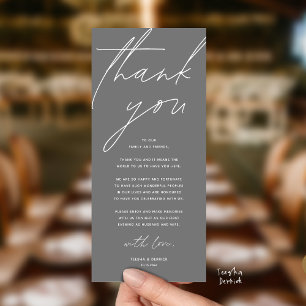 thank
you
TO OUR
FAMILY AND FRIENDS,
THANK YOU AND IT MEANS THE
WORLD TO US TO HAVE YOU HERE.
WE ARE SO HAPPY AND FORTUNATE
TO HAVE SUCH WONDERFUL PEOPLES
IN OUR LIVES AND ARE HONORED
TO HAVE YOU CELEBRATING WITH US.
PLEASE ENJOY AND MAKE MEMORIES
WITH US TONIGHT AS OUR
EVENING AS HUSBAND AND WIFE.
with love,
TEEGHA & DERRICK
Teegha
Derrick